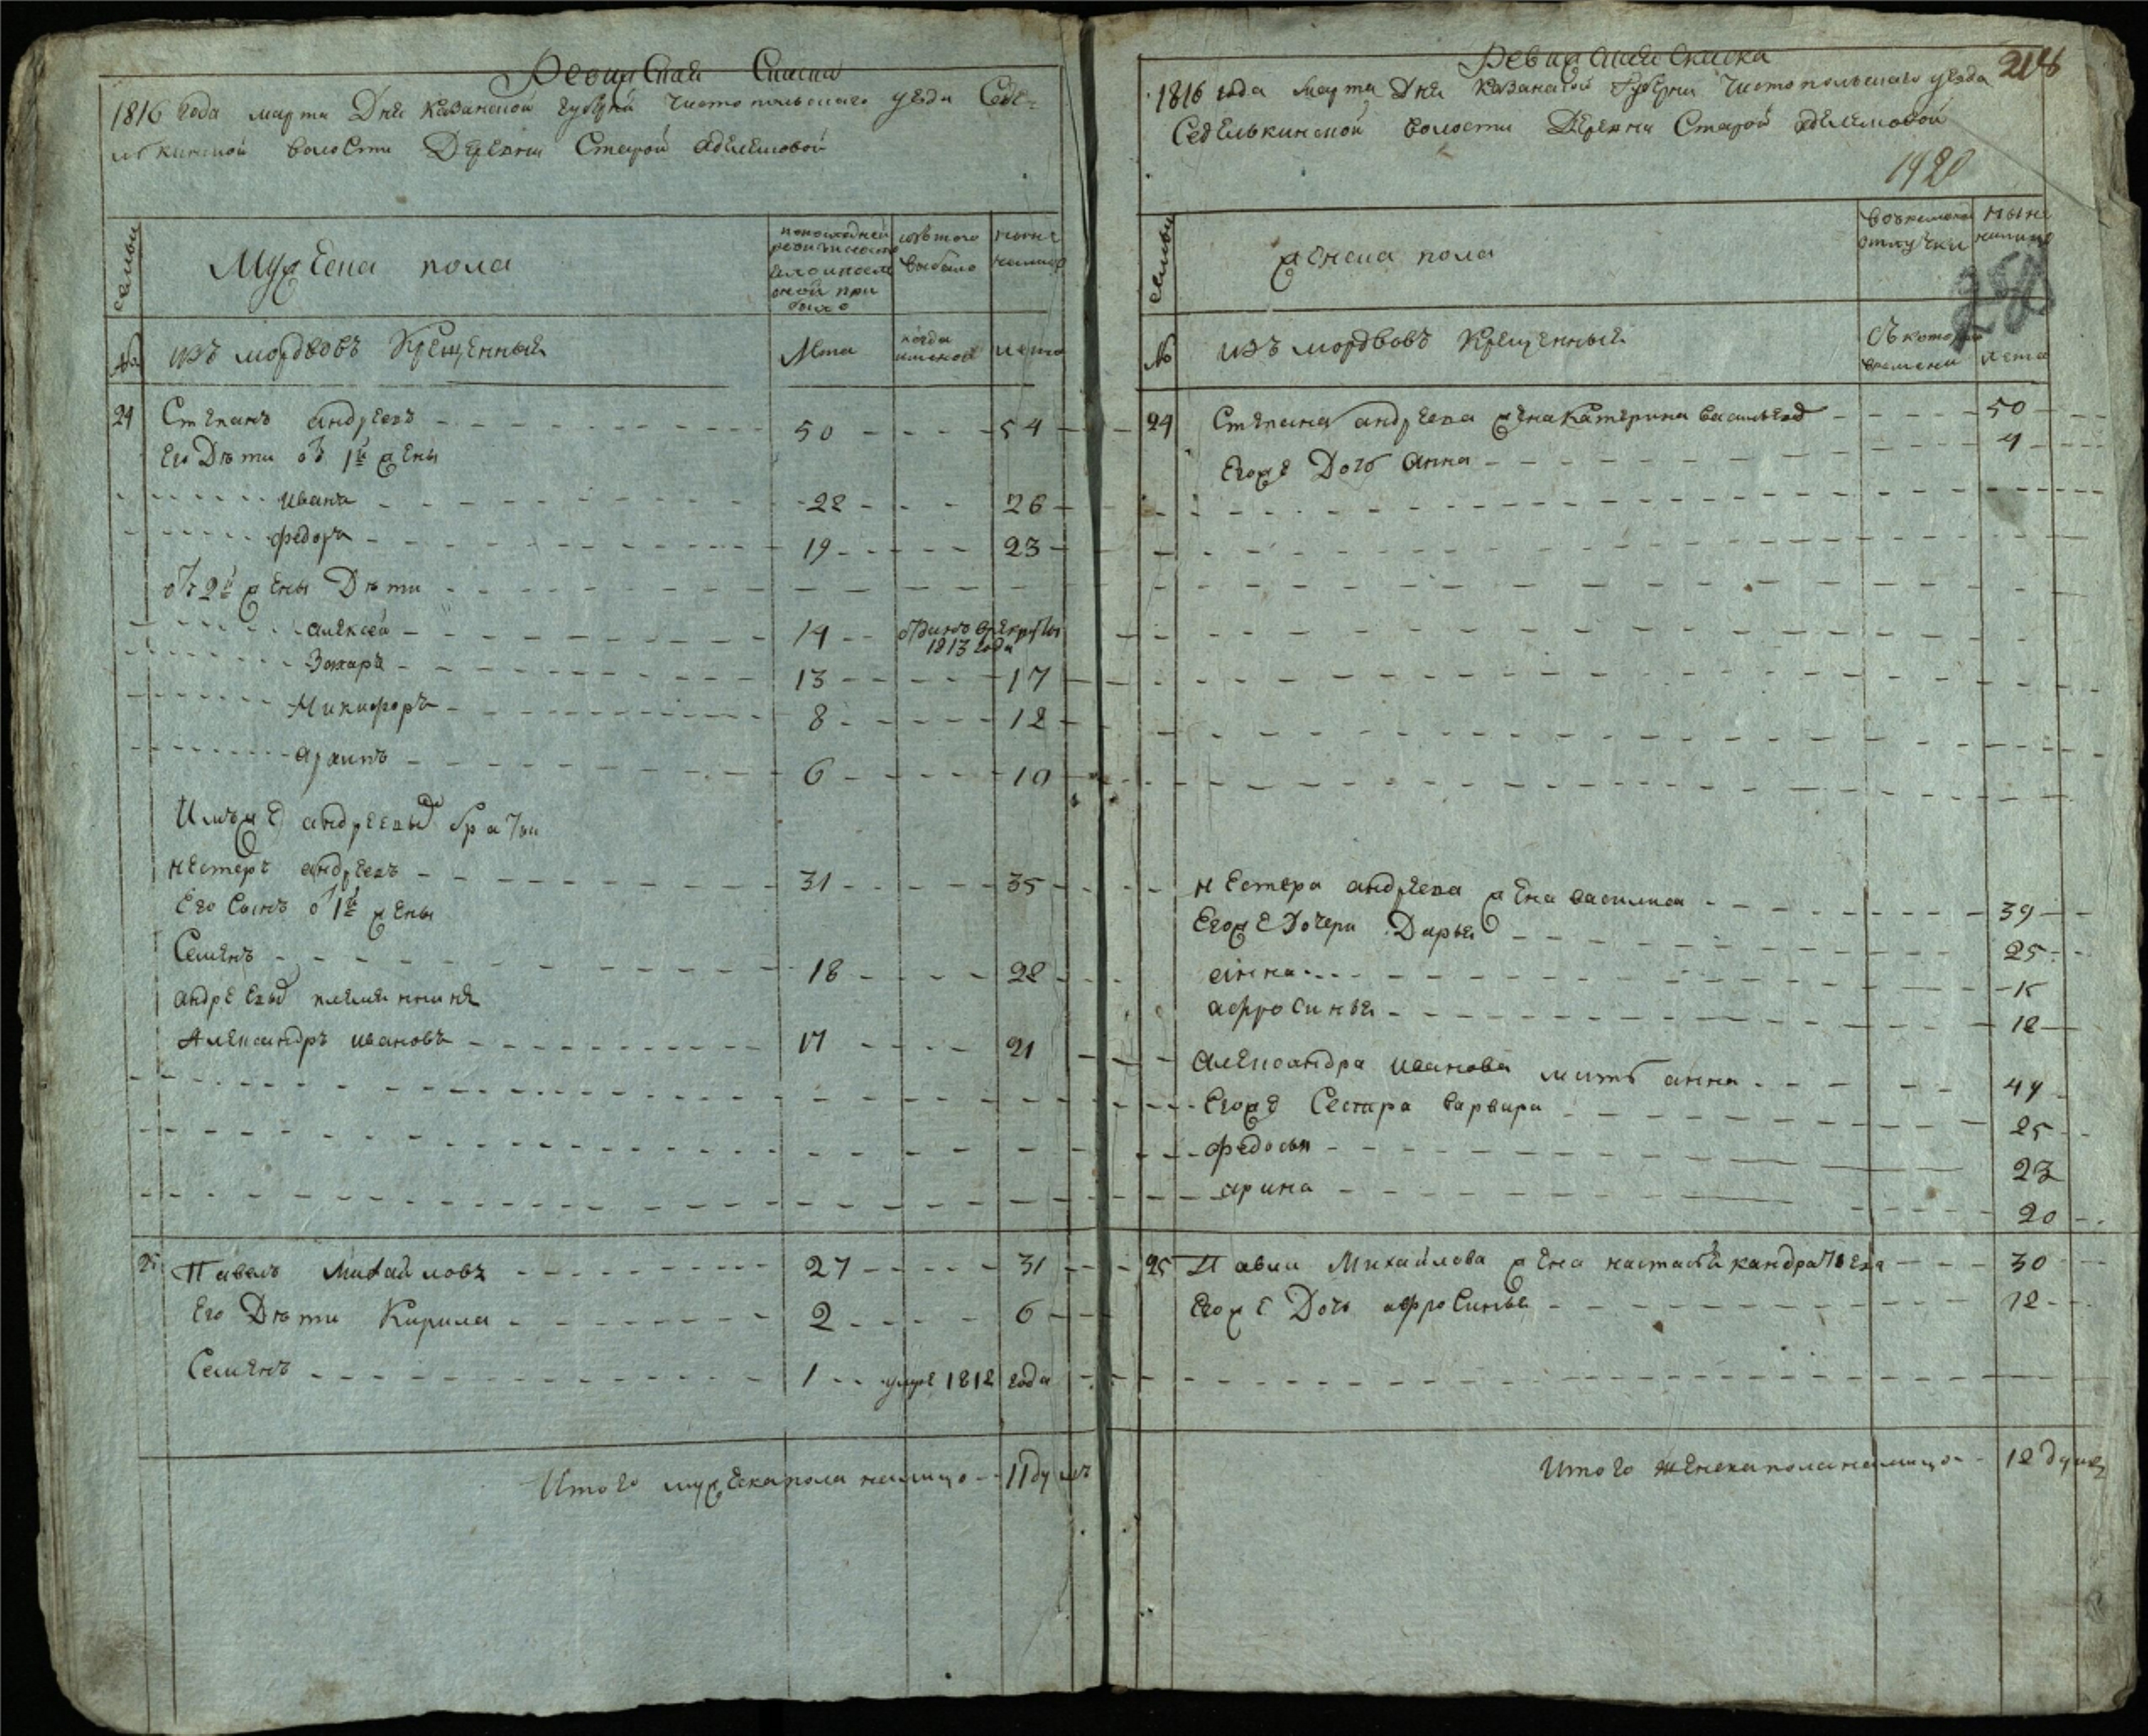 Ревижская Сказка
1816 года марта Дня Казанской губерни Чистопольскаго уезда Седе=
лькинской волости Деревни Старой Аделемовой
семьи
Мужеска пола
по последней ревизи состояло и после оной прибыло
изъ того выбыло
ныне налицо
№
изъ мордвовъ Крещенныя
Лета
когда имянно
лета
24 Степанъ андреевъ 50 54
Его Дѣти отъ 1й жены
иванъ 22 26
федоръ 19 23
отъ 2й жены Дѣти
алексей 14 отданъ врекруты 1813 года
Захаръ 13 17
Никифоръ 8 12
архипъ 6 10
андреевы братьи
нестеръ андреевъ 31 35
Его Сынъ о 1й жены
Семенъ 18 22
андреевы племянники
Александръ ивановъ 17 21
25 Павелъ Михайловъ 27 31
Его Дѣти Кирила 2 6
Семенъ 1 умре 1812 года
Итого мужска пола налицо 11 душъ
Ревижская Сказка
218
1816 года марта Дня Казанской Губерни Чистопольскаго уезда
Седелькинской волости Деревни Старой аделемовой
1920
семьи
женска пола
во временной отлучки
ныне налицо
№
изъ мордвовъ Крещенныя
Съ котораго времени
лета
24 Степана андреева жена Катерина васильева 50
Егоже Дочь анна 4
нестера андреева жена василиса 39
Егоже Дочери Дарья 25
анна 15
афросинья 12
александра иванова мать анна 44
Егоже Сестра варвара 25
федосья 23
арина 20
25 Павла Михайлова жена настасья кандратьева 30
Егоже Дочь афросинья 12
Итого женска пола налицо 12 душъ